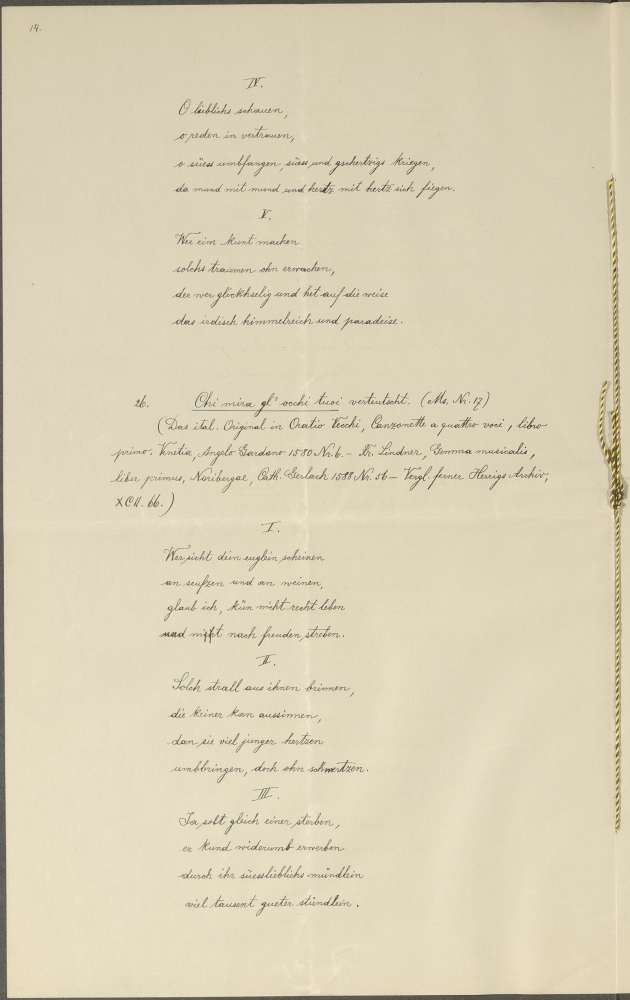 14.
IV.
O lieblichs schauen,
o reden in vertrauen,
o süess umbfangen, süess und gschertzigs kriegen,
da mund mit mund und hertz mit hertz sich fiegen.
V.
Wer eim kunt machen
solchs traumen ohn erwachen,
der wer glöckhselig und het auf die weise
das irdisch himmelreich und paradeise.
26. Chi mira gl' occhi tuoi verteutscht. (Ms. Nr. 17)
(Das ital. Original in Oratio Vecchi, Canzonette a quattro voci, libro
primo. Venetia, Angelo Gardano 1580 Nr. 6. – Fr. Lindner, Gemma musicalis,
liber primus, Noribergae, Cath. Gerlach 1588 Nr. 56 – Vergl. ferner Herrigs Archiv,
XCII. 66.)
I.
Wer sicht dein euglein scheinen
an seufzen und an weinen,
glaub ich, kün nicht recht leben
und nicht nach freuden streben.
II.
Solch strall aus ihnen brinnen,
die keiner kan aussinnen,
dan sie viel junger hertzen
umbbringen, doch ohn schmertzen.
III.
Ja, solt gleich einer sterben,
er kund widerumb erwerben
durch ihr süesslieblichs mündlein
viel tausent gueter stündlein.